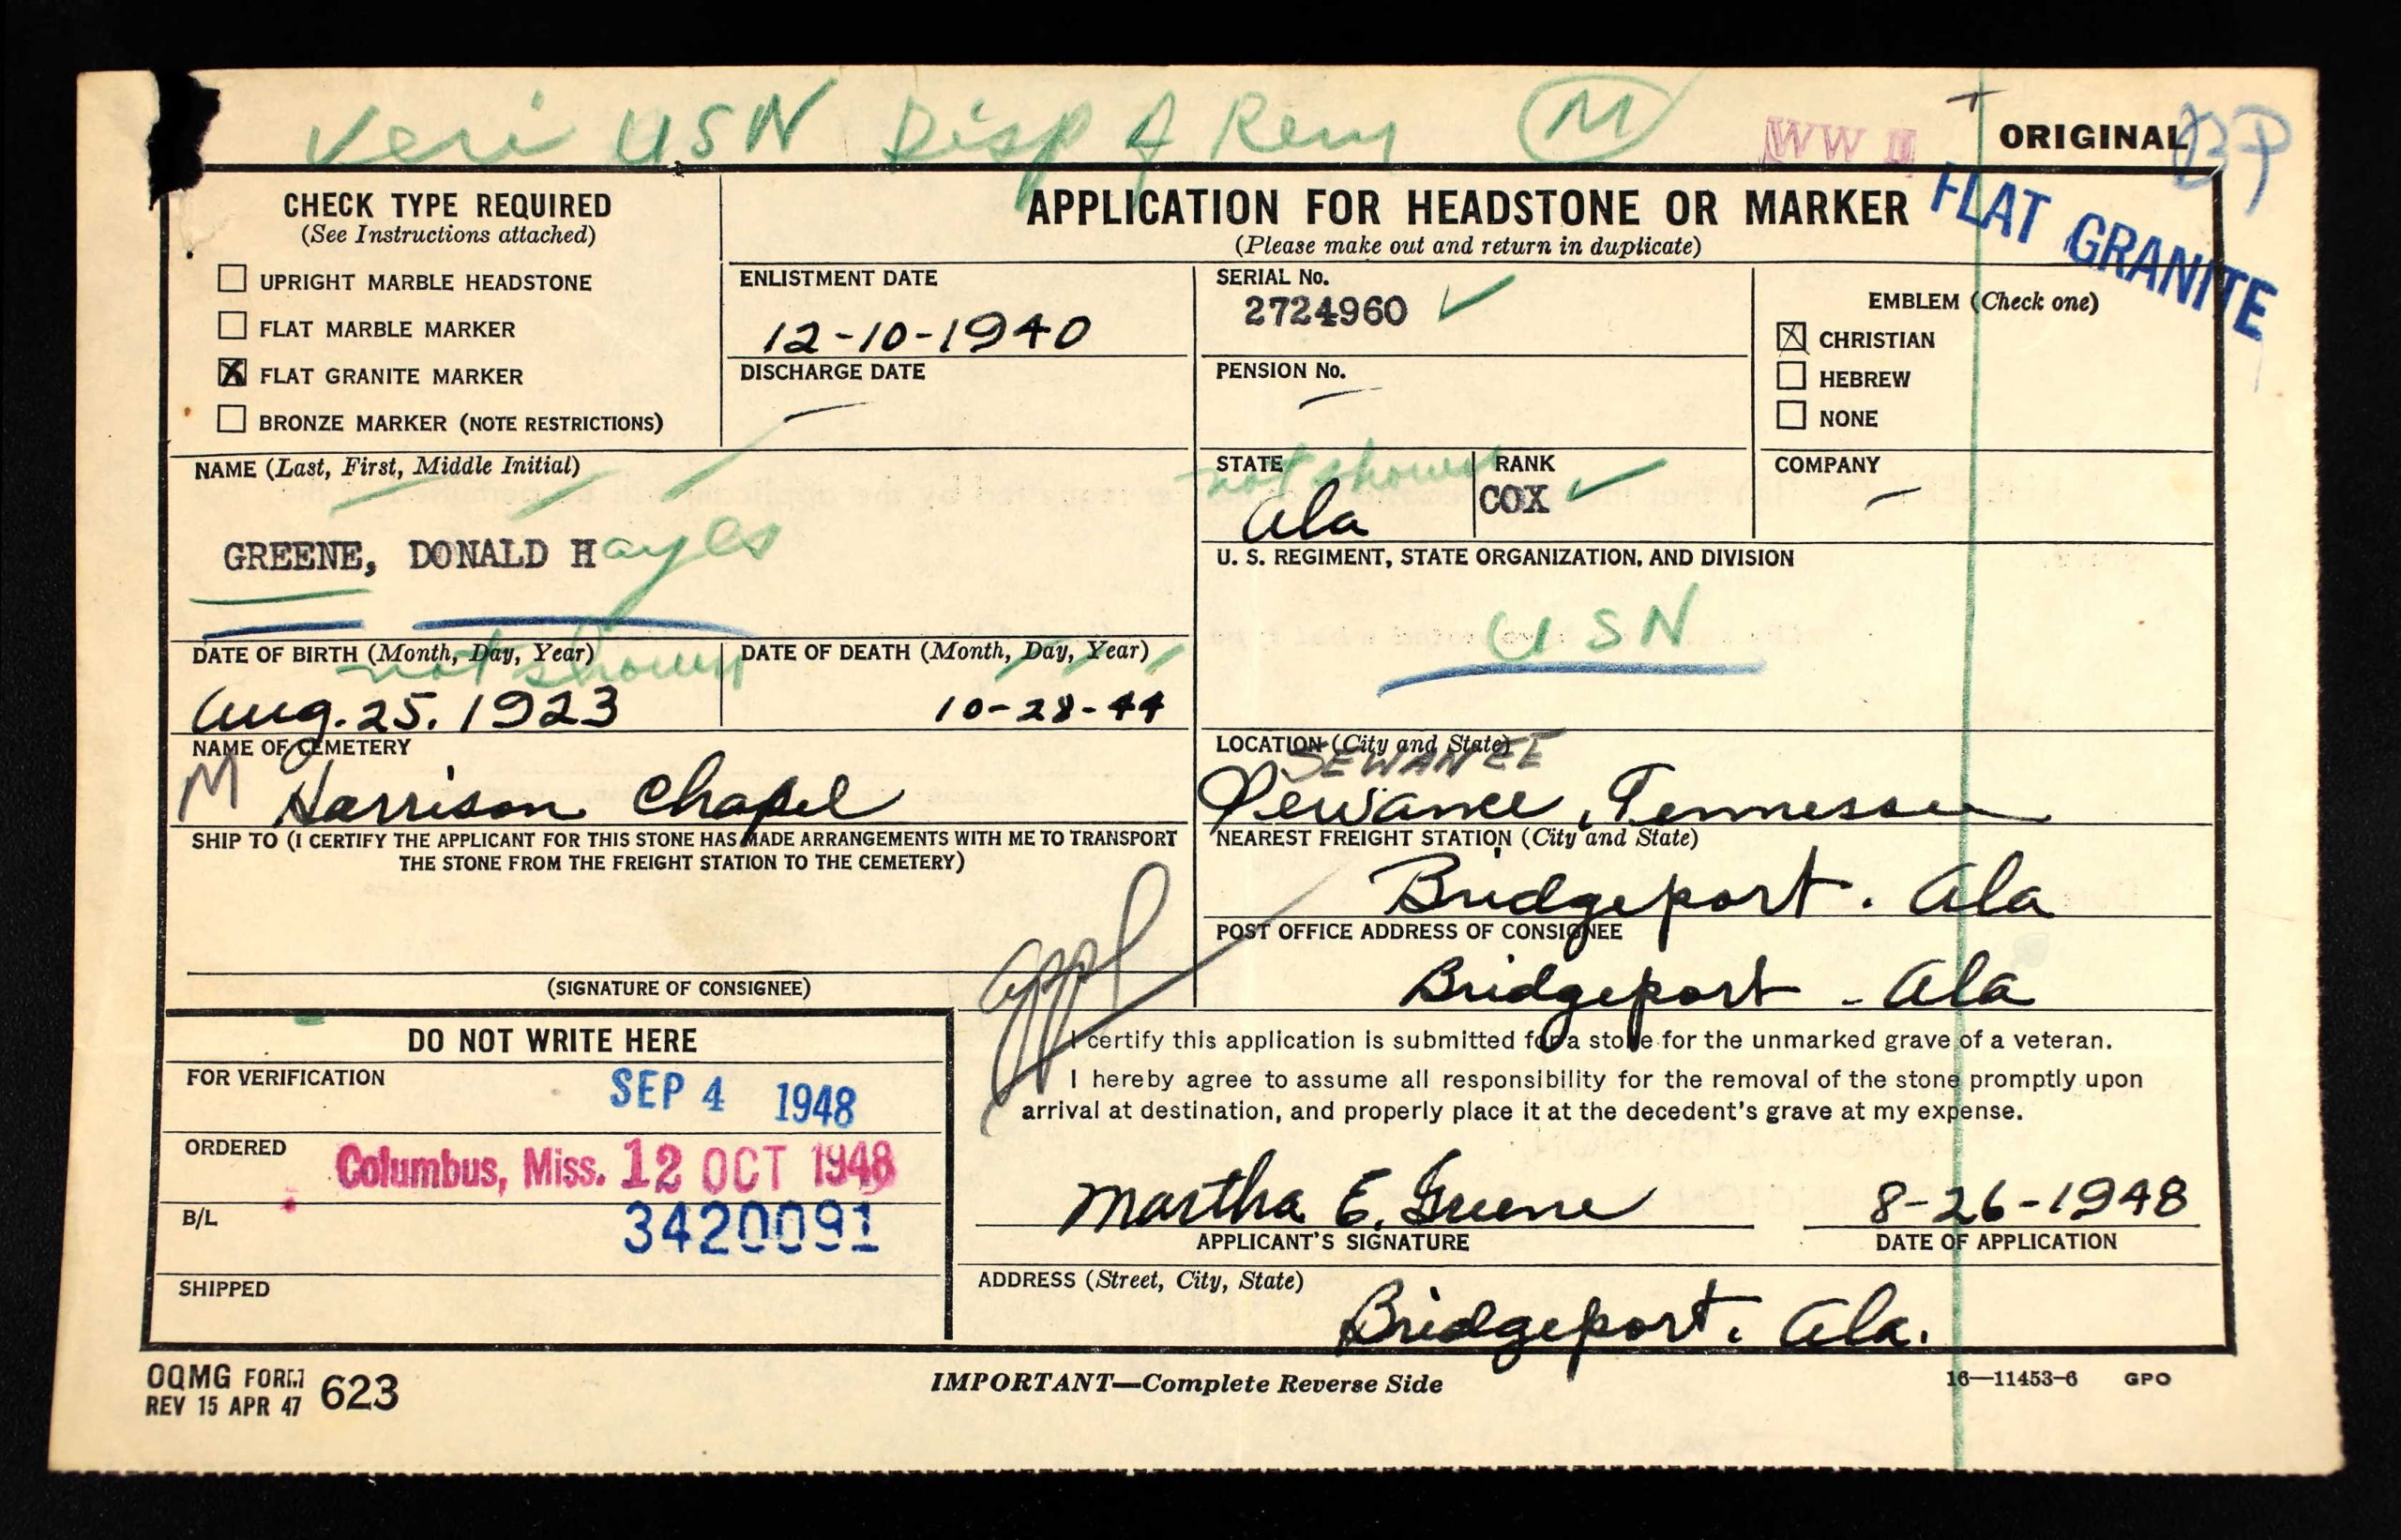 Veri USN Disp of Rem M
WW II
ORIGINAL
BP
FLAT GRANITE
CHECK TYPE REQUIRED
(See Instructions attached)
UPRIGHT MARBLE HEADSTONE
FLAT MARBLE MARKER
X FLAT GRANITE MARKER
BRONZE MARKER (NOTE RESTRICTIONS)
APPLICATION FOR HEADSTONE OR MARKER
(Please make out and return in duplicate)
ENLISTMENT DATE
12-10-1940
DISCHARGE DATE
—
SERIAL No.
2724960 ✓
PENSION No.
—
EMBLEM (Check one)
X CHRISTIAN
HEBREW
NONE
NAME (Last, First, Middle Initial)
GREENE, DONALD Hayes
STATE
not shown
Ala
RANK
COX ✓
COMPANY
—
U. S. REGIMENT, STATE ORGANIZATION, AND DIVISION
USN
DATE OF BIRTH (Month, Day, Year)
not shown
Aug. 25. 1923
DATE OF DEATH (Month, Day, Year)
10-28-44
NAME OF CEMETERY
M Harrison Chapel
LOCATION (City and State)
SEWANEE
Sewanee, Tennessee
SHIP TO (I CERTIFY THE APPLICANT FOR THIS STONE HAS MADE ARRANGEMENTS WITH ME TO TRANSPORT
THE STONE FROM THE FREIGHT STATION TO THE CEMETERY)
NEAREST FREIGHT STATION (City and State)
Bridgeport. Ala
POST OFFICE ADDRESS OF CONSIGNEE
Bridgeport - Ala
(SIGNATURE OF CONSIGNEE)
appl
DO NOT WRITE HERE
FOR VERIFICATION
SEP 4 1948
ORDERED
Columbus, Miss. 12 OCT 1948
B/L
3420091
SHIPPED
I certify this application is submitted for a stone for the unmarked grave of a veteran.
I hereby agree to assume all responsibility for the removal of the stone promptly upon
arrival at destination, and properly place it at the decedent's grave at my expense.
Martha E. Greene 8-26-1948
APPLICANT'S SIGNATURE DATE OF APPLICATION
ADDRESS (Street, City, State)
Bridgeport. Ala.
OQMG FORM 623
REV 15 APR 47
IMPORTANT—Complete Reverse Side
16—11453-6 GPO